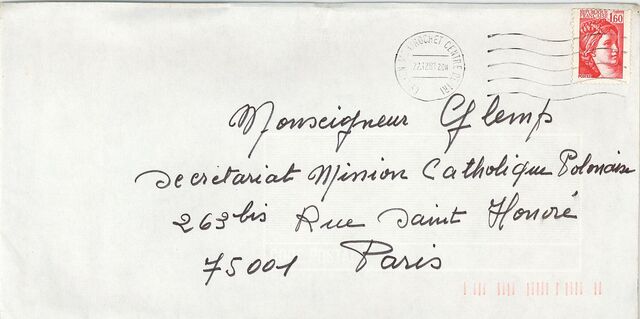 ROCHET CENTRE DE TRI
1,60
Monseigneur Glemp
Secretariat Mission Catholique Polonaise
263 bis Rue Saint Honoré
75001 Paris